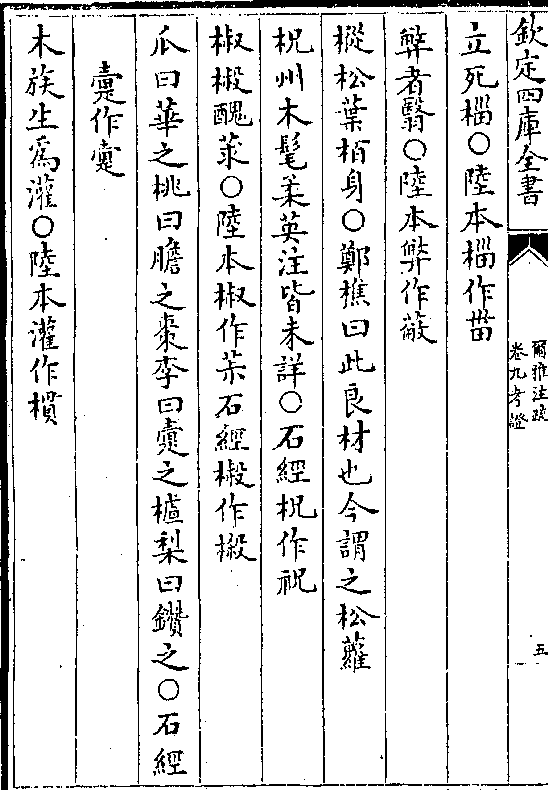 欽定四庫全書
爾雅注疏
卷九考證
五
立死椔○陸本椔作甾
弊者翳○陸本弊作蔽
樅松葉栢身○鄭樵曰此良材也今謂之松蘿
柷州木髦柔英注皆未詳○石經柷作祝
椒樧醜莍○陸本椒作茮石經樧作榝
瓜曰華之桃曰膽之棗李曰疐之樝梨曰鑽之○石經
疐作疐
木族生爲灌○陸本灌作樌